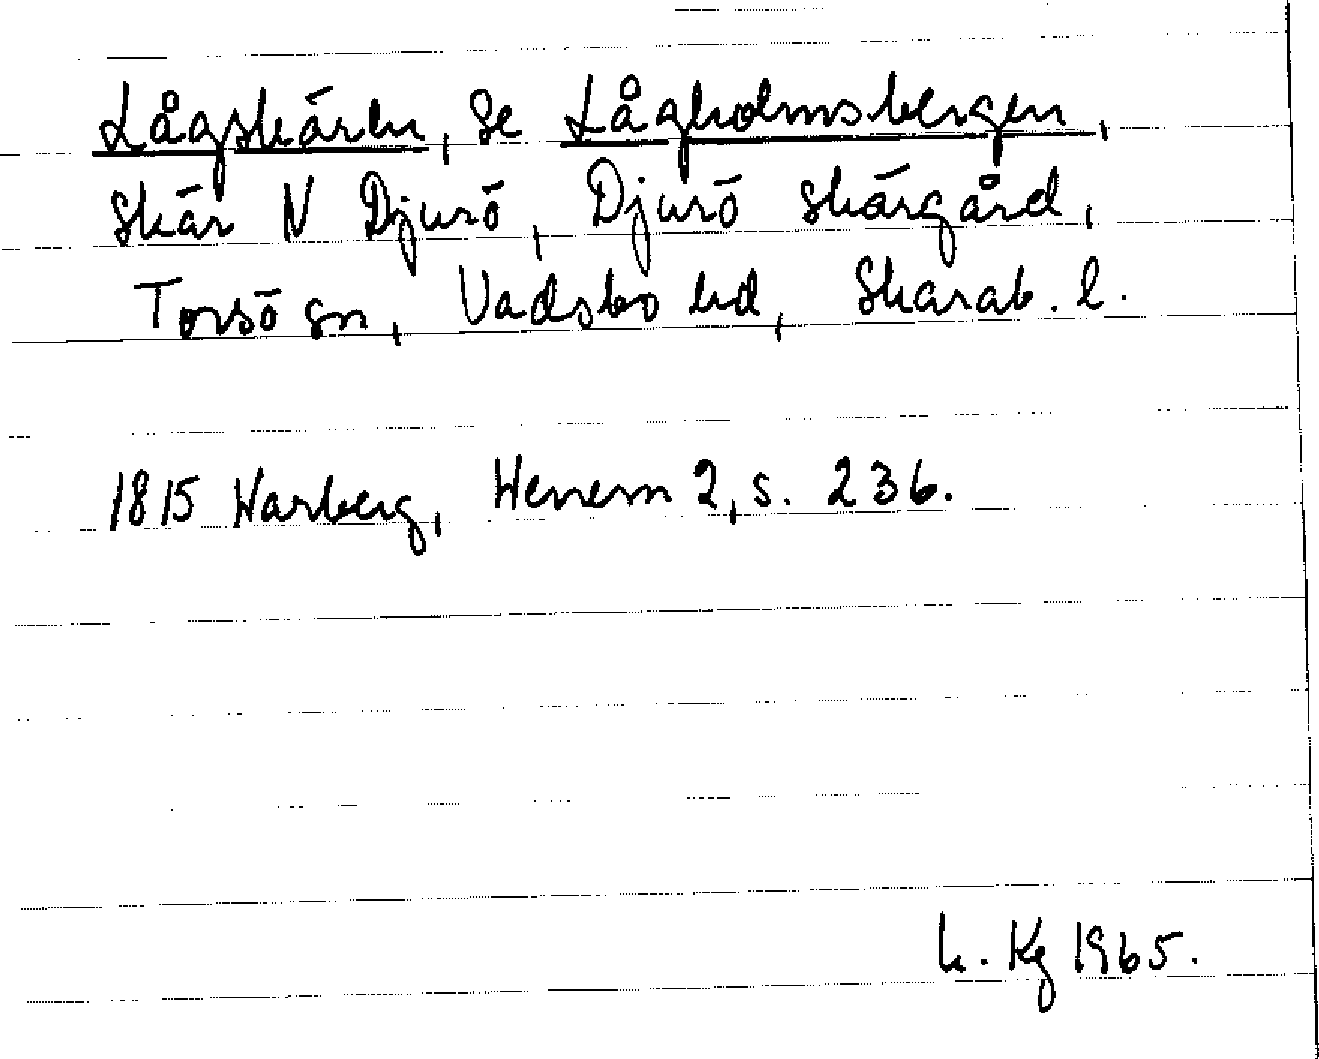 Lågskären, se Lågholmsbergen,
skär N Djurö, Djurö skärgård,
Torsö sn, Vadsbo hd, Skarab. l.
1815 Warberg, Wenern 2, s. 236.
L. Kg 1965.